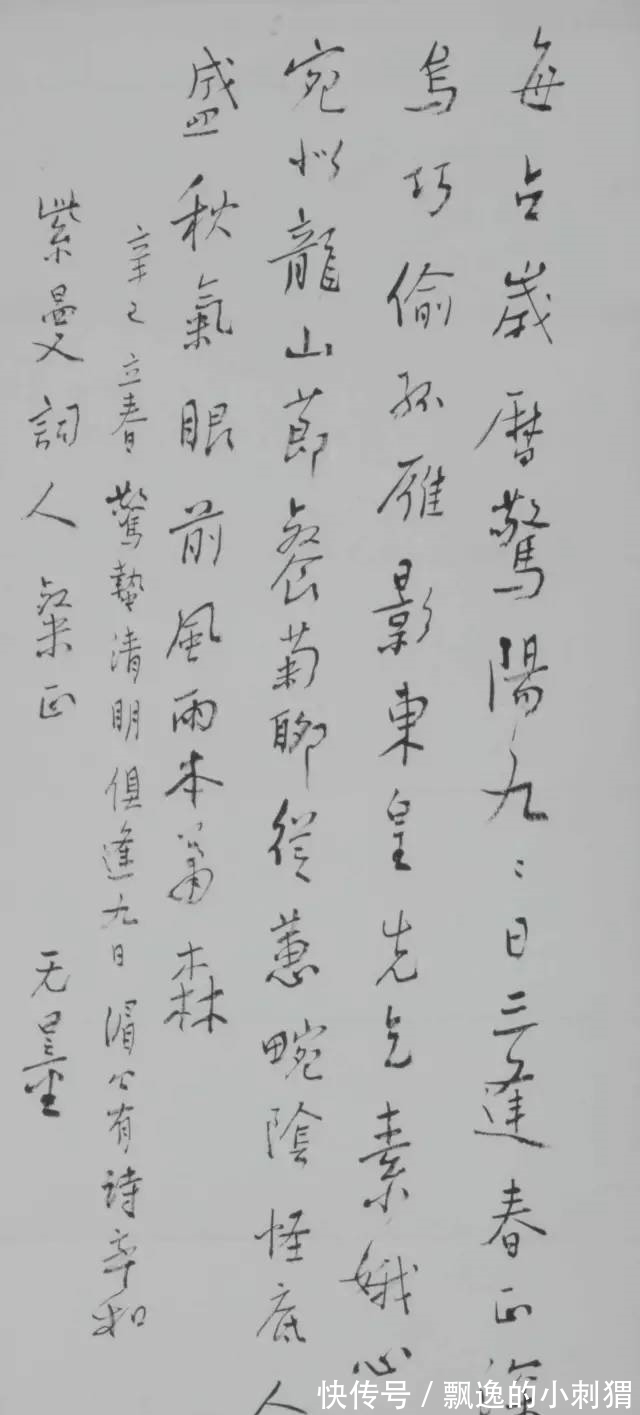 每占歲曆驚陽九九日三逢春正深
烏巧偷孤雁影東皇先乞素娥心
宛似龍山節餐菊聊從蕙畹陰怪底人
盛秋氣眼前風雨本蕭森
辛巳立春驚蟄清明俱逢九日 公有詩率和
紫曼詞人粲正 无量
快传号/飘逸的小刺猬